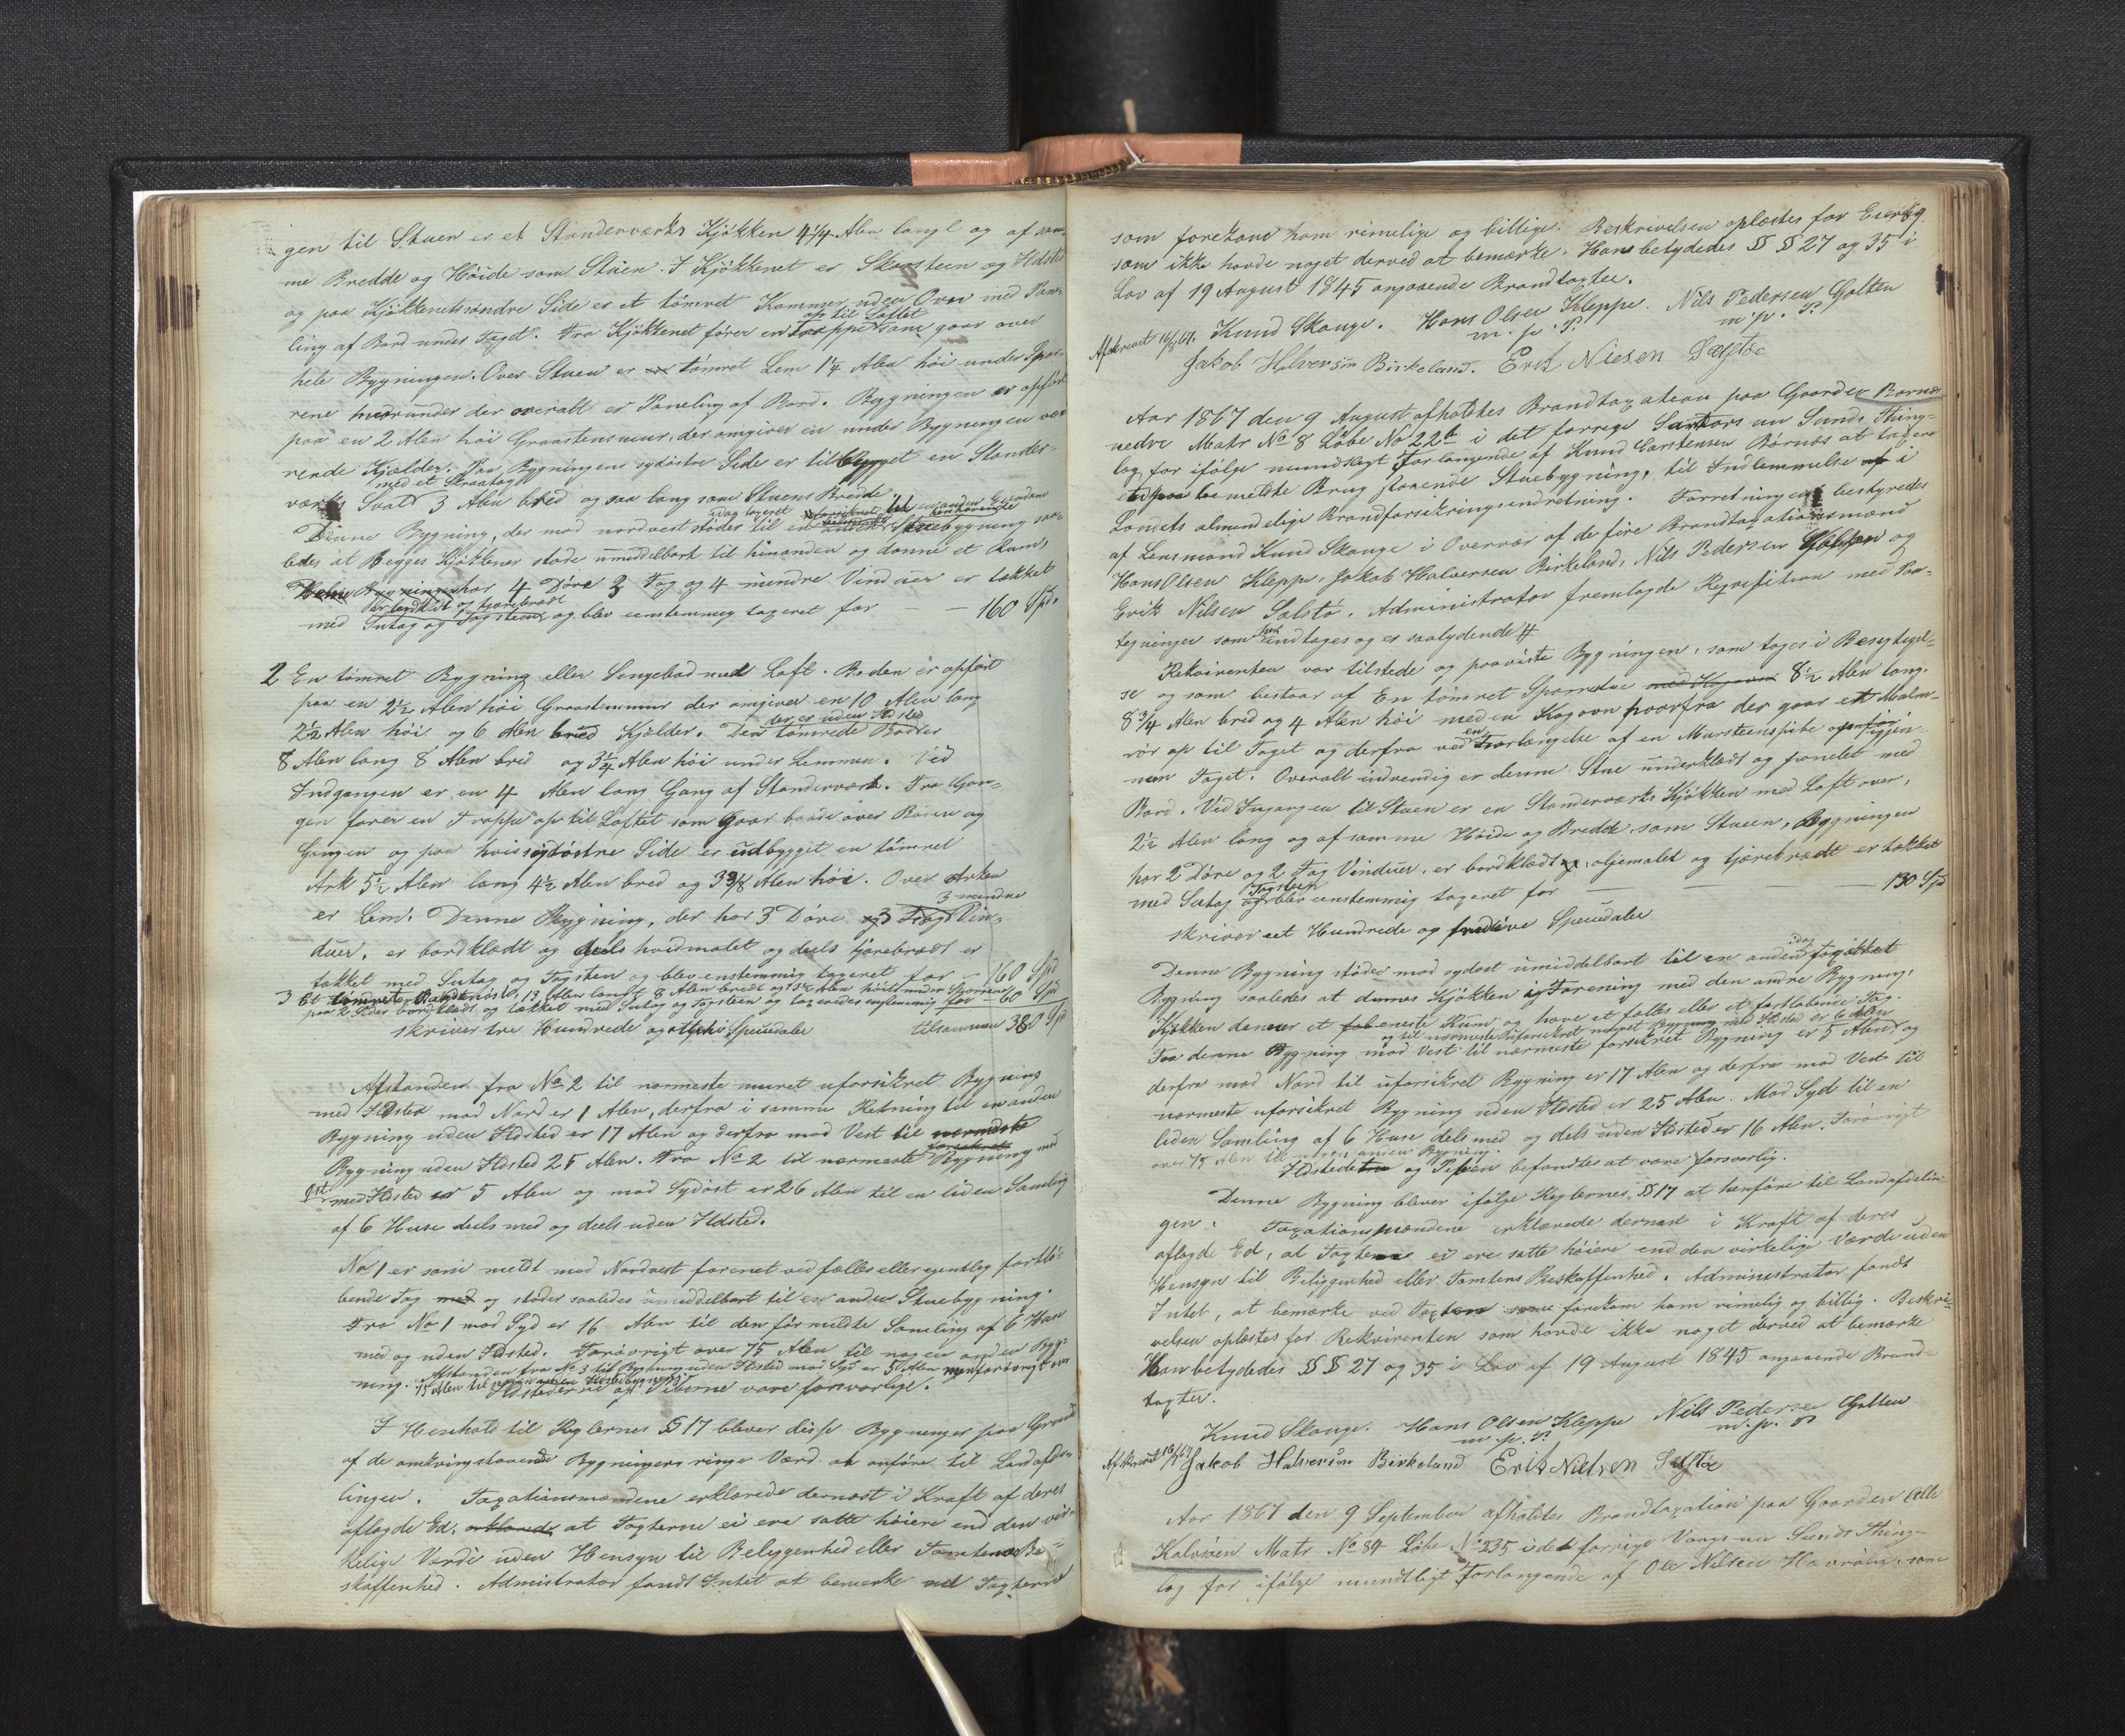 gen til Stuen er et Standerværks Kjökken 4 1/4 Alen langt og af sam-
me Bredde og Höide som Stuen. I Kjökkenet er Skorsteen og Ildsted
og paa Kjökkenets søndre Side er et tömret Kammer uden Ovn med Pan-
op til Loftet
ling af Bord under Taget. Fra Kjökkenet fører en Trappe som gaar over
hele Bygningen. Over Stuen er tömret Lem 1 1/4 Alen höi under Spær-
rene hvorunder der overalt er Paneling af Bord. Bygningen er opfört
paa en 2 Alen höi Graastensmuur, der omgiver en under Bygningen væ-
rende Kjælder. Paa Bygningens sydöstre Side er tilbygget en Stander-
med et Skraatag
værks Sval 3 Alen bred og saa lang som Stuens Bredde.
Denne Bygning, der mod nordvest støder til en Stuebygning saa-
ledes at Begges Kjökkener støde umiddelbart til hinanden og danne et Rum,
har 4 Döre 3 Fag og 4 mindre Vinduer er tækket
er bordklædt og tjærebrædt
med Sutag og Tagsteen og blev eenstemmig taxeret for — 160 Spd.
2 En tömret Bygning eller Sengebod med Loft. Boden er opfört
paa en 2 1/2 Alen höi Graasteensmuur der omgiver en 10 Alen lang
2 1/2 Alen höi og 6 Alen bred Kjelder. Den tömrede Bod er
der er uden Ildsted
8 Alen lang 8 Alen bred og 3 1/4 Alen höi under Lemmen. Ved
Indgangen er en 4 Alen lang Gang af Standerværk. Fra Gan-
gen fører en Trappe op til Loftet som gaar baade over Boden og
Gangen og paa hvis sydöstre Side er udbygget en tömret
Ark 5 1/2 Alen lang 4 1/2 Alen bred og 3 3/8 Alen höi. Over Arken
er Lem. Denne Bygning, der har 3 Döre 3 Fag 3 mindre Vin-
duer, er bordklædt og deels hvidmalet og deels tjærebrædt er
tækket med Sutag og Tagsten og blev enstemmig taxeret for — 160 Spd
3 Et 13 Alen langt 8 Alen bredt og Alen höit under Sperrene
paa 2 Sider bordklædt og tækket med Sutag og Tagsteen og taxeredes enstemmig for — 60 Spd
skriver tre Hundrede og otteti Speciedaler tilsammen 380 Spd
Afstanden fra No 2 til nærmeste muret uforsikret Bygning
med Ildsted mod Nord er 1 Alen, derfra i samme Retning til en anden
Bygning uden Ildsted er 17 Alen og derfra mod Vest til nærmeste
Bygning uden Ildsted 25 Alen. Fra No 2 til nærmeste Bygning mod
Öst med Ildsted er 5 Alen og mod Sydöst er 26 Alen til en liden Samling
af 6 Huse deels med og deels uden Ildsted.
No 1 er som meldt mod Nordvest forenet ved fælles eller egentlig fortlö-
bende Tag og støder saaledes umiddelbart til en anden Stuebygning.
Fra No 1 mod Syd er 16 Alen til den förmeldte Samling af 6 Huse
med og uden Ildsted. Forövrigt over 75 Alen til nogen anden Byg-
ning. Afstanden fra No 3 til Bygning uden Ildsted mod Syd er 5 Alen men forövrigt over
75 Alen til nogen anden Ildstedsbygning.
Ildstederne og Piberne vare forsvarlige.
I Henhold til Reglernes § 17 bliver disse Bygninger paa Grund
af de omkringstaaende Bygningers ringe Værd at anföre til Landafde-
lingen. Taxationsmændene erklærede dernæst i Kraft af deres
aflagde Ed, at Taxterne ei ere satte höiere end den vir-
kelige Værdi uden Hensyn til Beliggenhed eller Tomtens Be-
skaffenhed. Administrator fandt Intet at bemærke ved Taxterne
som forekom ham rimelige og billige. Beskrivelsen oplæstes for Eieren
som ikke havde noget derved at bemærke. Han betydedes §§ 27 og 35 i
Lov af 19 August 1845 angaaende Brandtaxter.
Afskrevet 16/8 67. Knud Skauge. Hans Olsen Kleppe. Nils Pedersen Golten
m. p. P. m. p. P
Jakob Halversön Birkeland. Erik Nielsen Salstöe
Aar 1867 den 9 August afholdtes Brandtaxation paa Gaarden Bornæs
nedre Matr No 8 Löbe No 22b i det forrige Sartors nu Sunds Thing-
lag for ifölge mundtlligt Forlangende af Knud Carstensen Börnæs at taxere
en paa bemeldte Brug staaende Stuebygning, til Indlemmelse i
Landets almindelige Brandforsikringsindretning. Forretningen bestyredes
af Lensmand Knud Skauge i Overvær af de fire Brandtaxationsmænd
Hans Olsen Kleppe, Jakob Halversen Birkeland, Nils Pedersen Golten og
Erik Nilsen Salstö. Administrator fremlagde Reqvisition med Paa-
tegninger som indtages og er saalydende #
Rekvirenten var tilstede og paaviste Bygningen, som toges i Besigtigel-
se og som bestaar af En tömret Sparrestue 8 1/2 Alen lang.
8 3/4 Alen bred og 4 Alen höi med en Kogovn hvorfra der gaar et Malm-
rör op til Taget og derfra ved en Forlængelse af en Mursteenspibe igjen-
nem Taget. Overalt indvendig er denne Stue underklædt og panelet med
Bord. Ved Ingangen til Stuen er en Standerværks Kjökken med Loft over,
2 1/2 Alen lang og af samme Höide og Bredde som Stuen. Bygningen
har 2 Döre og 2 Fag Vinduer, er bordklædt, oljemalet og tjærebrædt er tækket
med Sutag og Tagsteen blev eenstemmig taxeret for — — — 130 Spd
skriver eet Hundrede og tredive Speciedaler
Denne Bygning støder mod sydöst umiddelbart til en anden idag taxeret
Bygning saaledes at dennes Kjökken i Forening med den andre Bygnings
Kjökken danner et eneste Rum og have et fælles eller et fortløbende Tag.
og til nærmeste uforsikret muret Bygning med Ildsted er 6 Alen
Fra denne Bygning mod Vest til nærmeste forsikret Bygning er 5 Alen og
derfra mod Nord til uforsikret Bygning er 17 Alen og derfra mod Vest til
nærmeste uforsikret Bygning uden Ildsted er 25 Alen. Mod Syd til en
liden Samling af 6 Huse dels med og dels uden Ildsted er 16 Alen. Forövrigt
over 75 Alen til nogen anden Bygning.
Ildstedet og Piben befandtes at være forsvarlig.
Denne Bygning bliver ifölge Reglernes § 17 at henföre til Landafdelin-
gen. Taxationsmændene erklærede dernæst i Kraft af deres
aflagde Ed, at Taxten ei ere satte höiere end den virkelige Værdi uden
Hensyn til Beliggenhed eller Tomtens Beskaffenhed. Administrator fandt
Intet, at bemærke ved Taxten forekom ham rimelig og billig. Beskri-
velsen oplæstes for Rekvirenten som havde ikke noget derved at bemærke
Han betydedes §§ 27 og 35 i Lov af 19 August 1845 angaaende Brand-
taxter.
Knud Skauge. Hans Olsen Kleppe Nils Pedersen Golten
m. p. P. m. p. P
Afskrevet 16/8 67 Jakob Halversön Birkeland Erik Nielsen Salstöe
Aar 1867 den 9 September afholdtes Brandtaxation paa Gaarden Lille
Kalvöen Matr No 84 Löbe No 235 i det forrige Vaags nu Sunds Thing-
lag for ifölge mundtligt Forlangende af Ole Nilsen Havröen, som